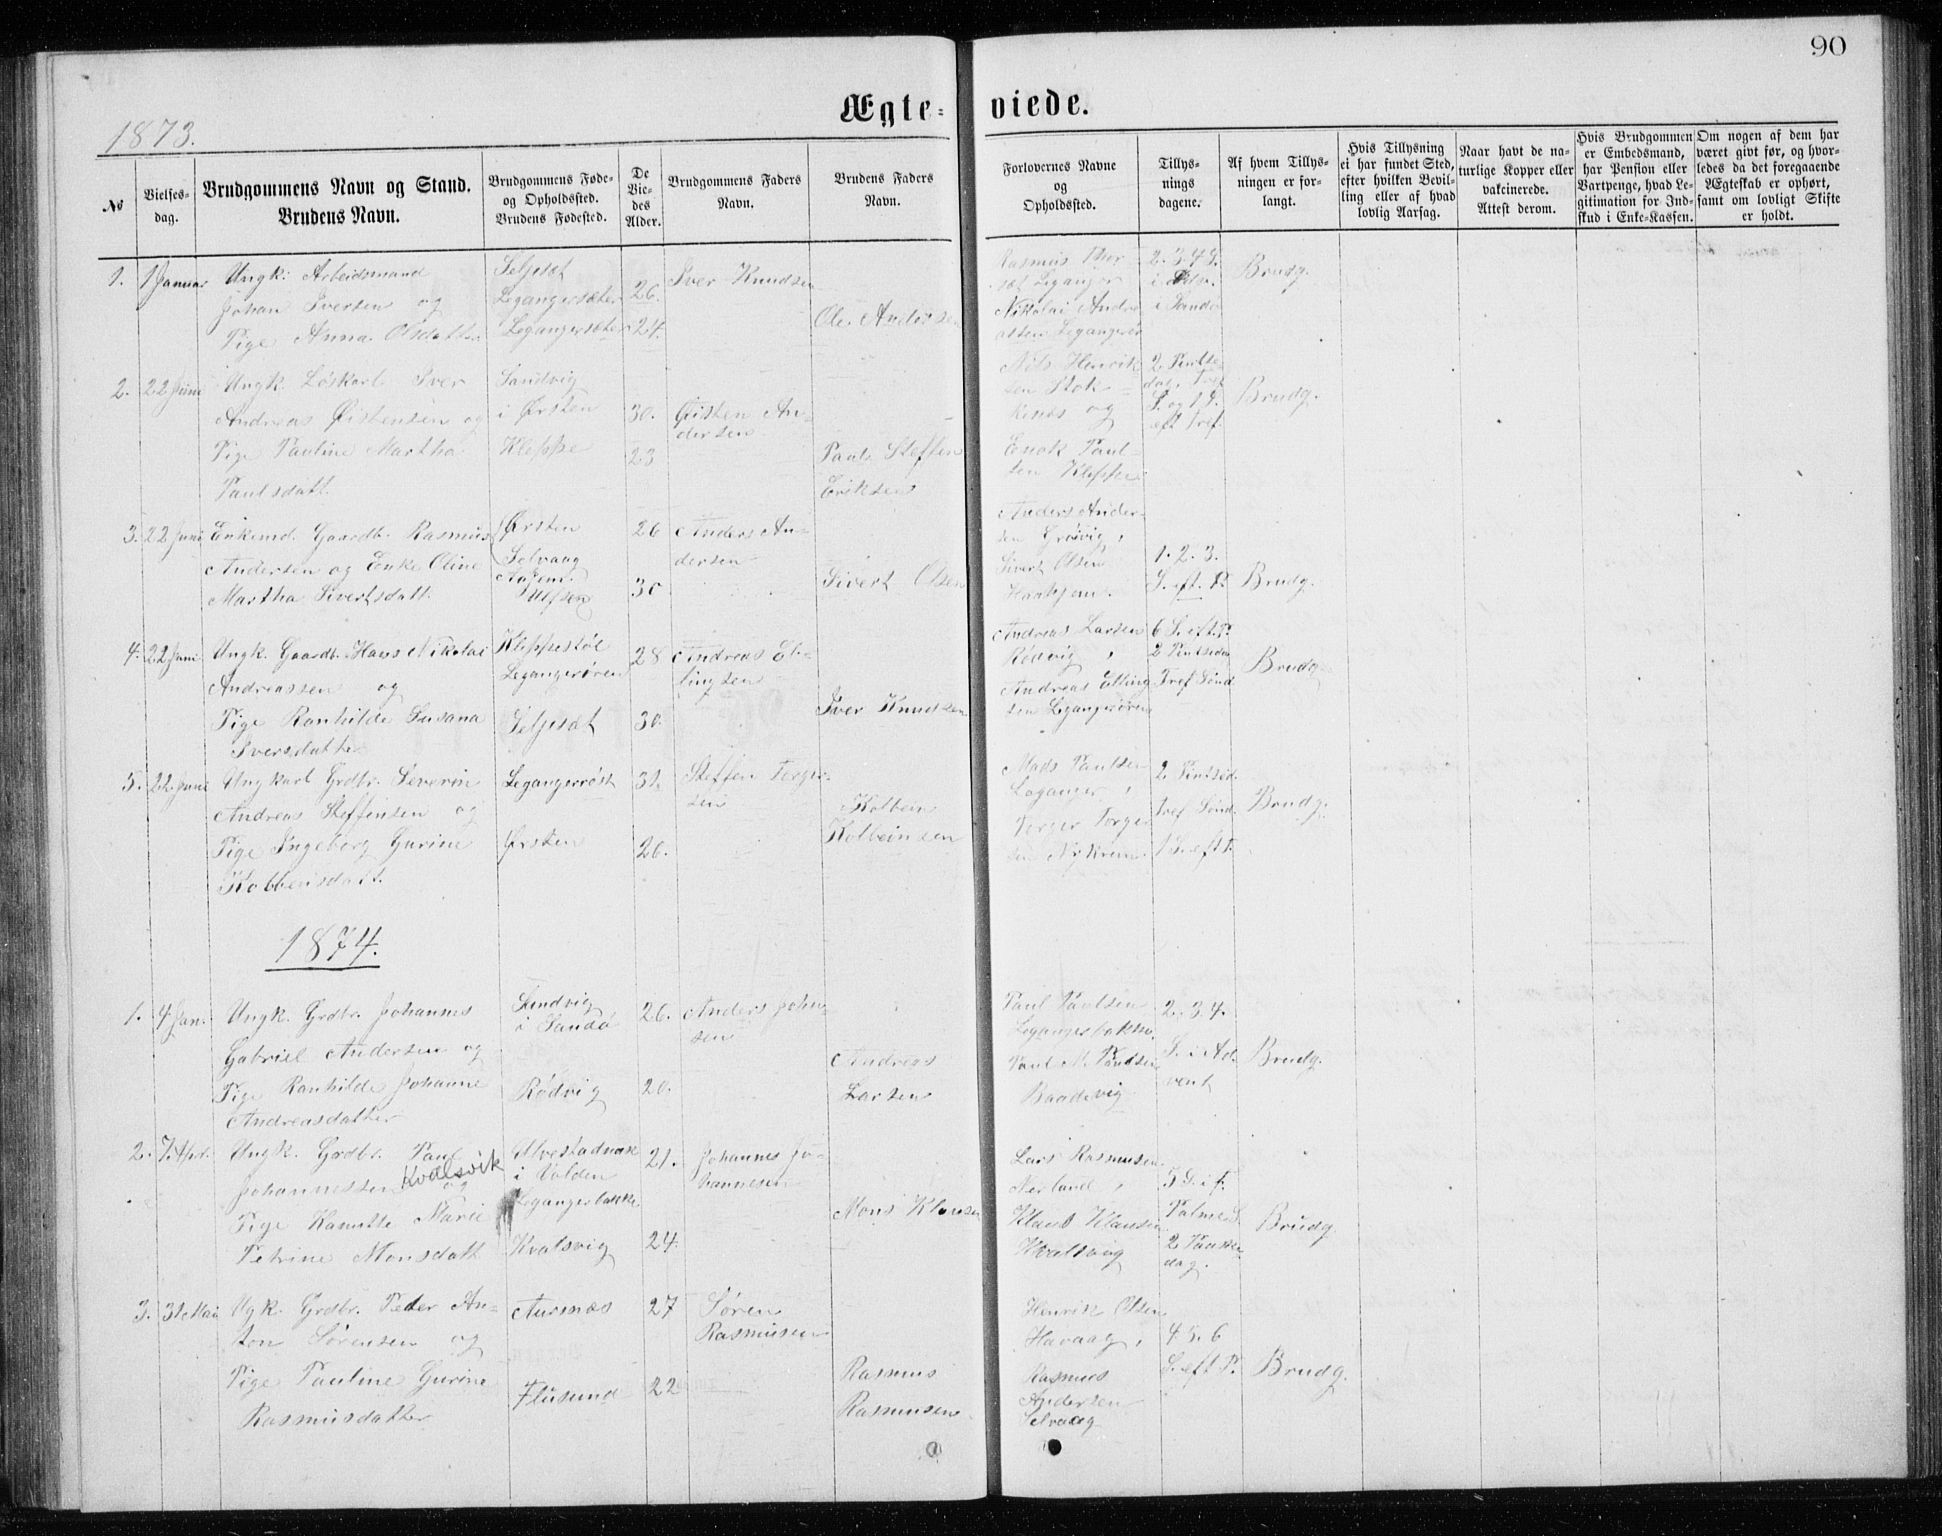 90
Ægte-viede.
1873.
No
Vielses-
dag.
Brudgommens Navn og Stand.
Brudens Navn.
Brudgommens Føde-
og Opholdssted.
Brudens Fødested.
De
Vie-
des
Alder.
Brudgommens Faders
Navn.
Brudens Faders
Navn.
Forlovernes Navne
og
Opholdssted.
Tillys-
nings
dagene.
Af hvem Tillys-
ningen er for-
langt.
Hvis Tillysning
ei har fundet Sted,
efter hvilken Bevil-
ling eller af hvad
lovlig Aarsag.
Naar havt de na-
turlige Kopper eller
vakcinerede.
Attest derom.
Hvis Brudgommen
er Embedsmand,
har Pension eller
Vartpenge, hvad Le-
gitimation for Ind-
skud i Enke-Kassen.
Om nogen af dem har
været givt før, og hvor-
ledes da det foregaaende
Ægteskab er ophørt,
samt om lovligt Skifte
er holdt.
1. 1 Januar Ungk: Arbeidsmand
Johan Iversen og
Pige Anna Olsdatter
Seljesæt
Legangersæter 26.
Legangersæter 24.
Iver Knudsen
Ole Anders
Rasmus Thor
sæt Leganger
Nikolai Andre
assen Legangerør
2. 3. 4 S.
i Sandø
Brudg.
2. 22 Juni Ungk. Løskarl Iver
Andreas Øistensen og
Pige Pauline Martha
Paulsdatt.
Sandvig
i Ørsten 30.
Kleppe 23
Øisten An-
dersen
Paul Steffen
Eriksen
Nils Henrik
sen Stok-
kenes og
Enok Paul-
sen Kleppe
2 Pintse
dag, Tref
S. og 1 S.
eft Tref.
Brudg.
3. 22 Juni Enkemd. Gaardb. Rasmus
Andersen og Enke Oline
Martha Sivertsdatt.
Ørsten
Selvaag
26
30
Anders An-
dersen
Sivert Olsen
Anders Ander-
sen Grøvig,
Sivert Olsen
1. 2. 3.
S. eft. P.
Brudg.
4. 22 Juni Ungk. Gaardb. Hans Nikolai
Andreassen og
Pige Ranhilde Susana
Iversdatter
Kleppestøl
Legangerøren
Seljesæt
28
30.
Andreas El-
lingsen
Iver Knudsen
Andreas Larsen
Rødvig,
Andreas Elling
sen Legangerøren
6 S. eft. P.
2 Pintsedag
Tref Sønd
Brudg
5. 22 Juni Ungkarl Grdbr. Severin
Andreas Steffensen og
Pige Ingeborg Gurine
Kolbeinsdatt.
Legangerrøst
Ørsten
32
26.
Steffen Torger
sen
Kolbein
Kolbeinsen
Mads Paulsen
Leganger,
Torger Torger
sen Nykrem
2 Pintsed.
Tref Sønd.
1 S. eft T.
Brudg.
1874.
1. 4 Jan. Ungk. Grdbr. Johannes
Gabriel Andersen og
Pige Ranhilde Johanne
Andreasdatter
Sandvig
i Sandø
Rødvig
26.
20.
Anders Johan
sen
Andreas
Larsen
Paul Paulsen
Paul M. Paulsen
Baadevig
2. 3. 4.
S. i Ad-
vent
Brudg.
2. 7. Apr. Ungk. Grdbr. Paul
Johannessen Kvalsvik og
Pige Hanutte Marie
Petrine Monsdatt
Alvestadnæs
i Volden
Legangerbakke
Kvalsvig
21.
24.
Johannes Jo-
hannesen
Mons Klausen
Lars Rasmusen
Nerland,
Klaus Klausen
Kvalsvig
5 S. i F.
Palme S.
2 Paaske
dag.
Brudg
3. 31 Mai Ugk. Grdbr. Peder An-
ton Sørensen og
Pige Pauline Gurine
Rasmusdatter
Aursnæs
Flusund
27
22
Søren
Rasmusen
Rasmus
Rasmusen
Henrik Olsen
Havaag,
Rasmus
Andersen
Selvaag
4. 5. 6
S. eft P.
Brudg.